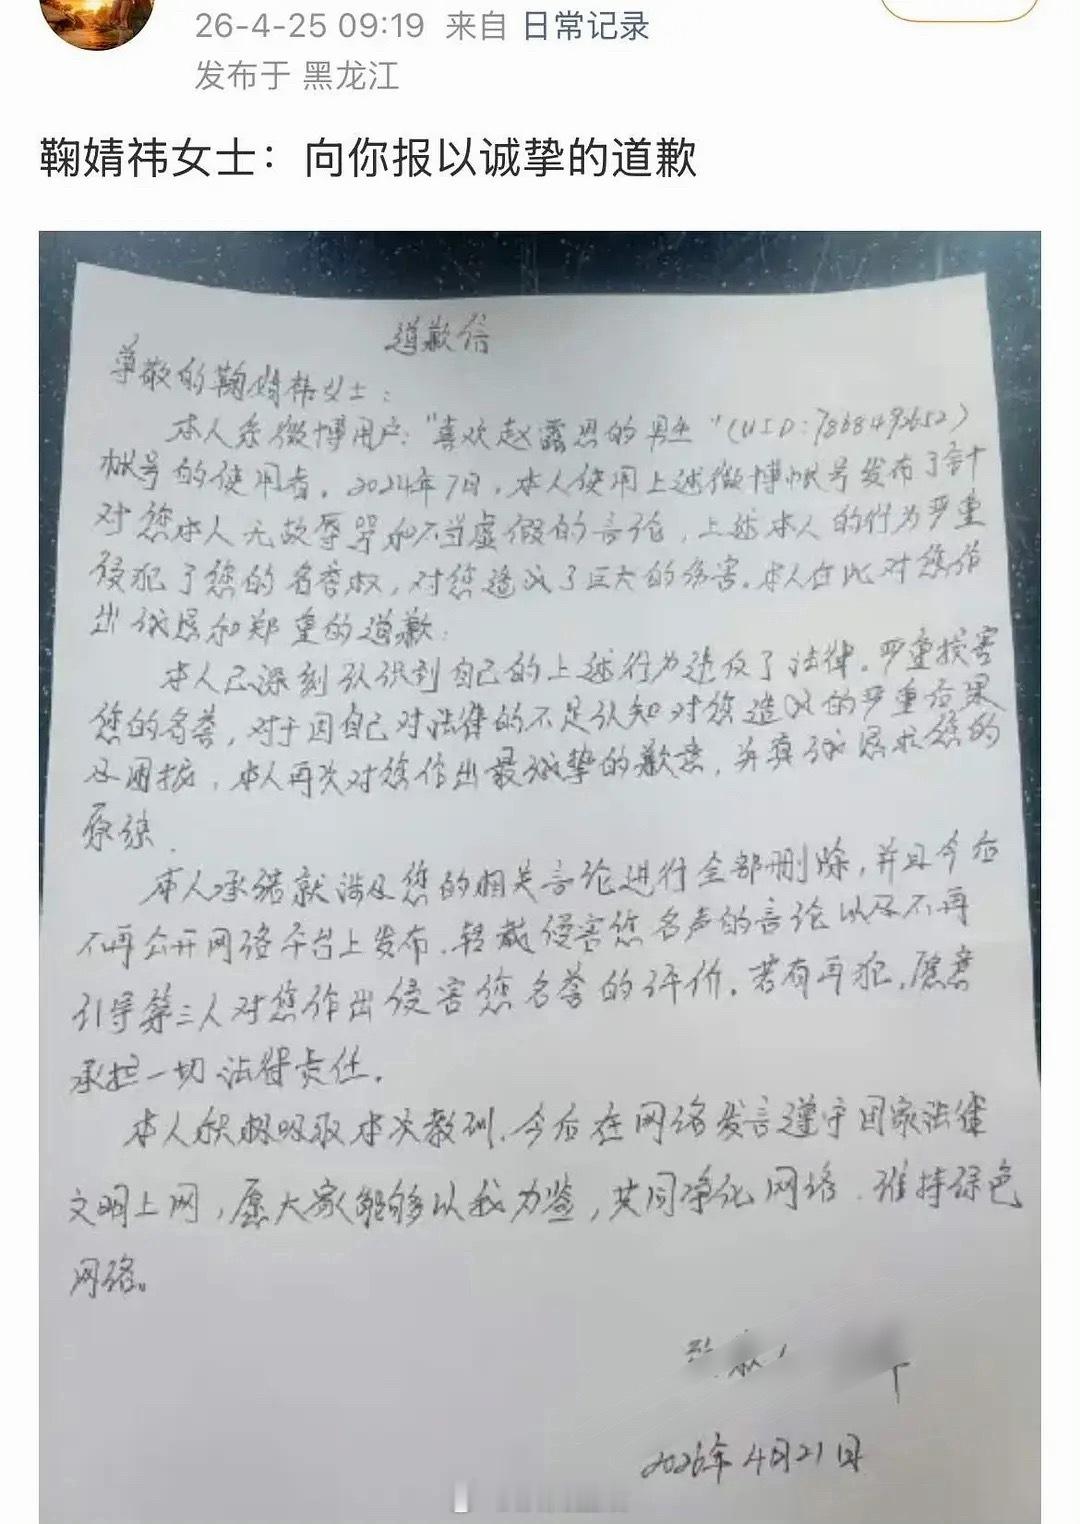 26-4-25 09:19 来自 日常记录
发布于 黑龙江
鞠婧祎女士：向你报以诚挚的道歉
道歉信
尊敬的鞠婧祎女士：
本人系微博用户："喜欢赵露思的男生"(UID:7868493652)
帐号的使用者。2024年7日，本人使用上述微博帐号发布了含计
对您本人无故辱骂和不当虚假的言论，上述本人的行为严重
侵犯了您的名誉权，对您造成了巨大的伤害。本人在此对您作
出诚恳和郑重的道歉：
本人已深刻认识到自己的上述行为违反了法律。严重损害
您的名誉，对于因自己对法律的不足认知对您造成的严重后果
及困扰，本人再次对您作出最诚挚的歉意，并真诚恳求您的
原谅.
本人承诺就涉及您的相关言论进行全部删除，并且今后
不再公开网络平台上发布、转载侵害您名声的言论以及不再
引导第三人对您作出侵害您名誉的评价。若有再犯，愿意
承担一切法律责任。
本人积极吸取本次教训、今后在网络发言遵守国家法律
文明上网，愿大家能够以我为鉴，共同净化网络、维持绿色
网络。
2026年4月21日